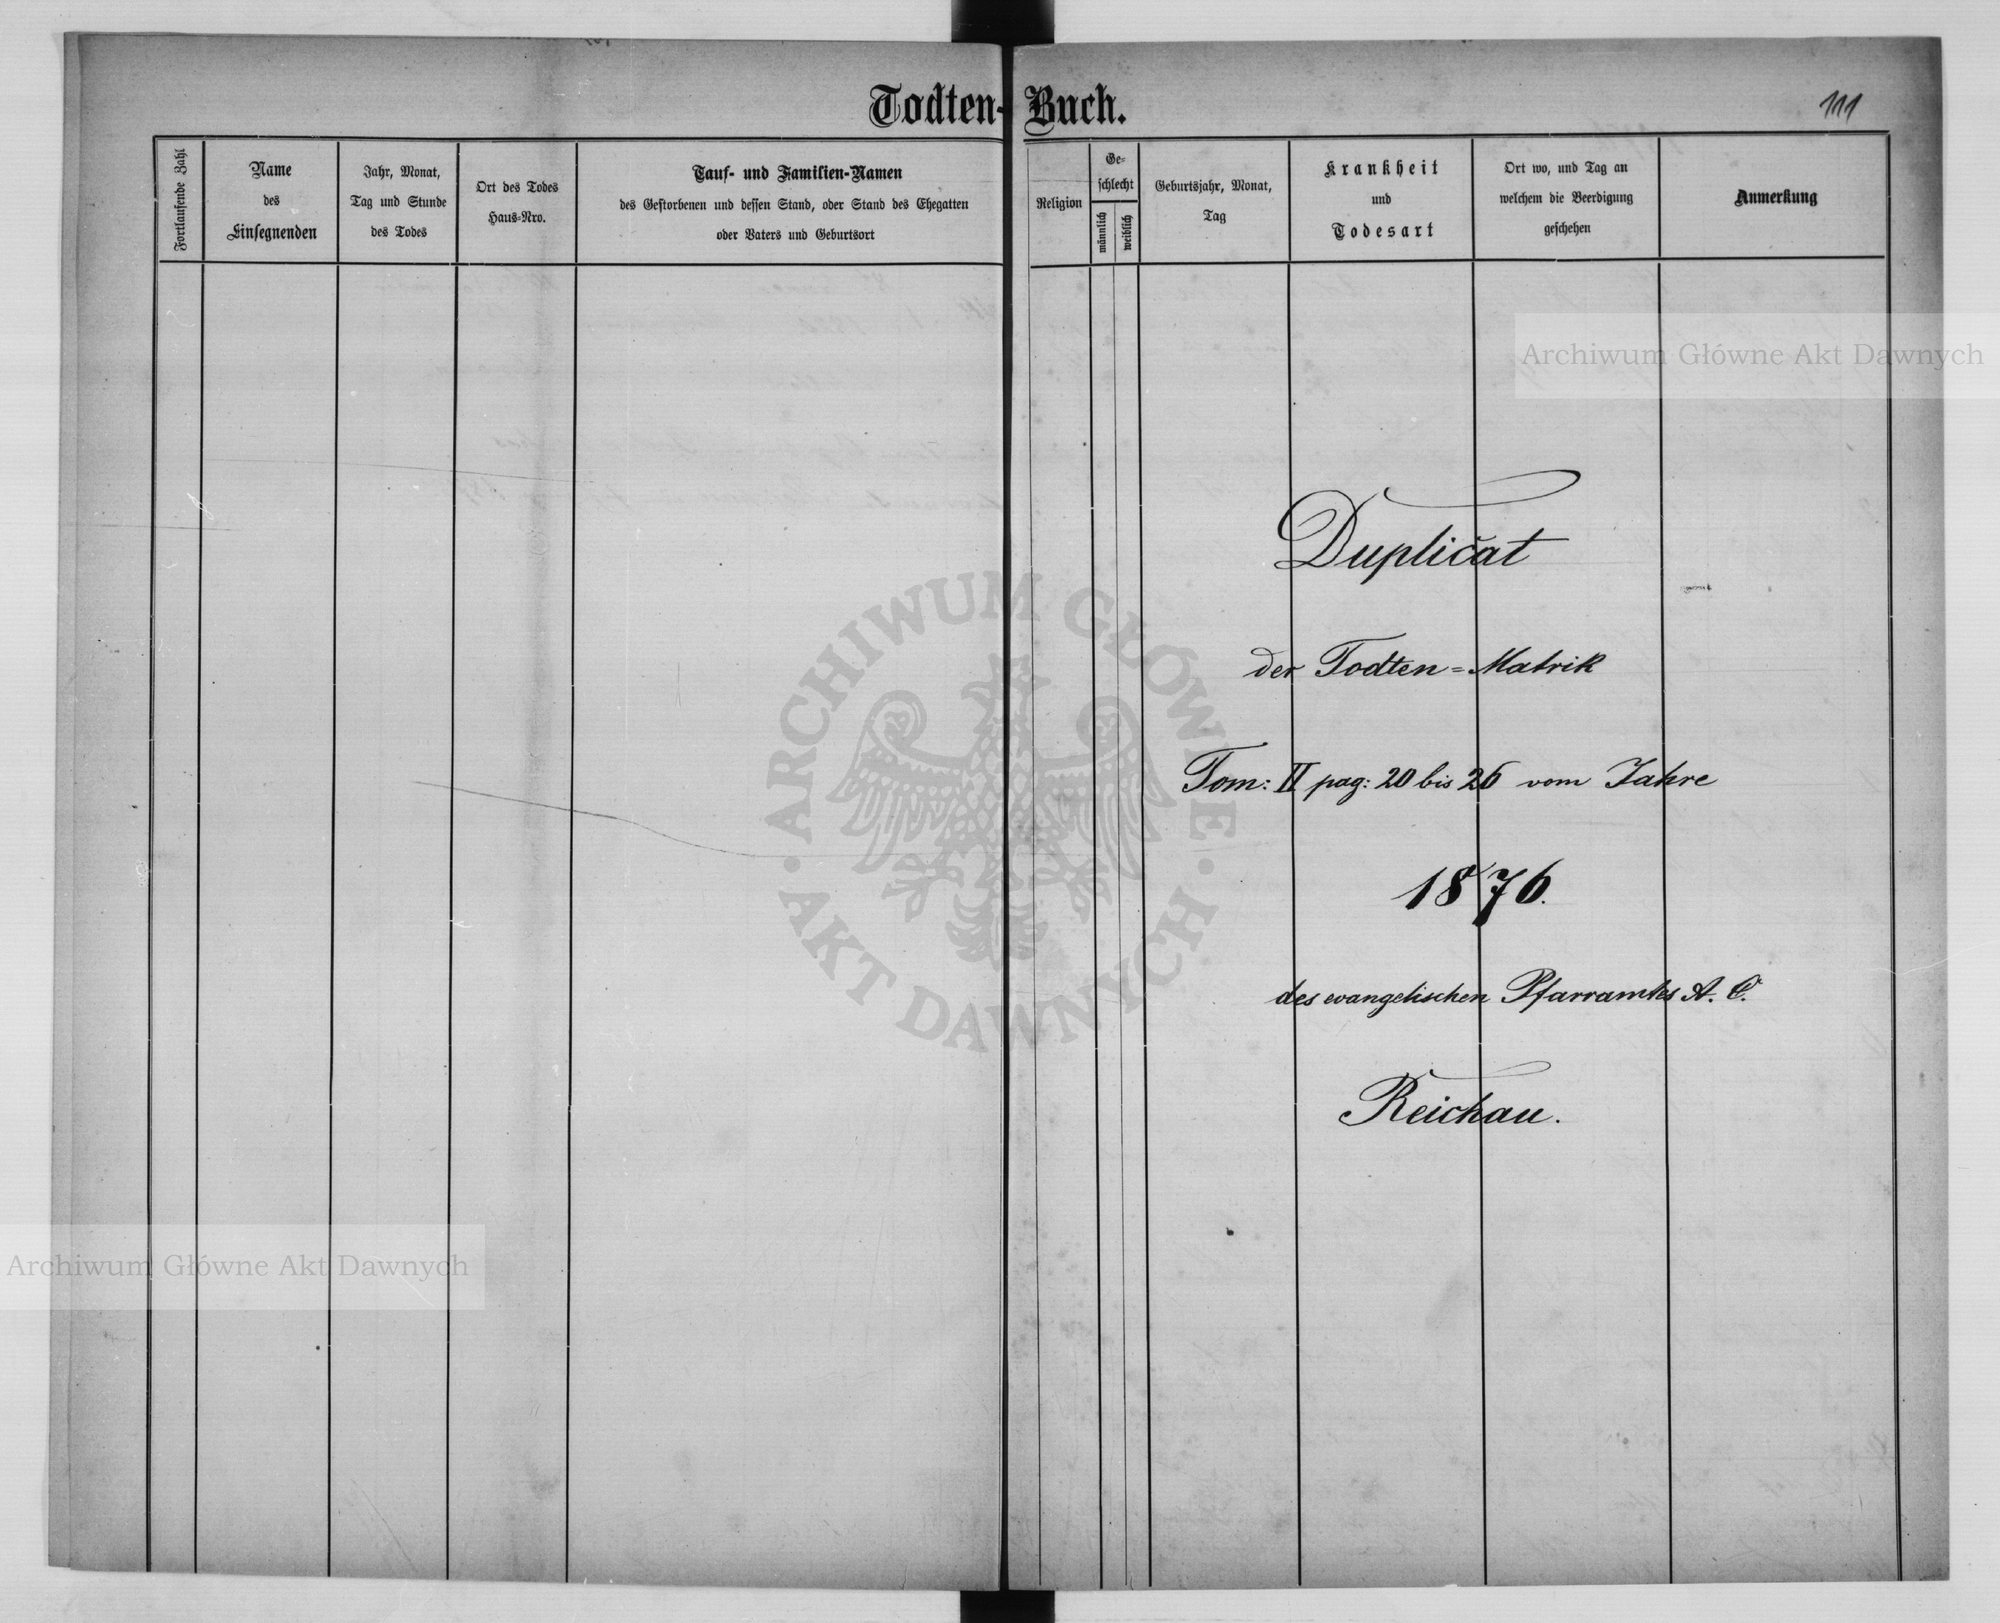 Todten-Buch.
111
Fortlaufende Zahl
Name
des
Einsegnenden
Jahr, Monat,
Tag und Stunde
des Todes
Ort des Todes
Haus-Nro.
Tauf- und Familien-Namen
des Gestorbenen und dessen Stand, oder Stand des Ehegatten
oder Vaters und Geburtsort
Religion
Ge-
schlecht
männlich
weiblich
Geburtsjahr, Monat,
Tag
Krankheit
und
Todesart
Ort wo, und Tag an
welchem die Beerdigung
geschehen
Anmerkung
Archiwum Główne Akt Dawnych
Duplicat
der Todten=Matrik
Tom: II pag: 20 bis 26 vom Jahre
1876.
des evangelischen Pfarramtes A. C.
Reichau.
ARCHIWUM GŁÓWNE
AKT DAWNYCH
Archiwum Główne Akt Dawnych